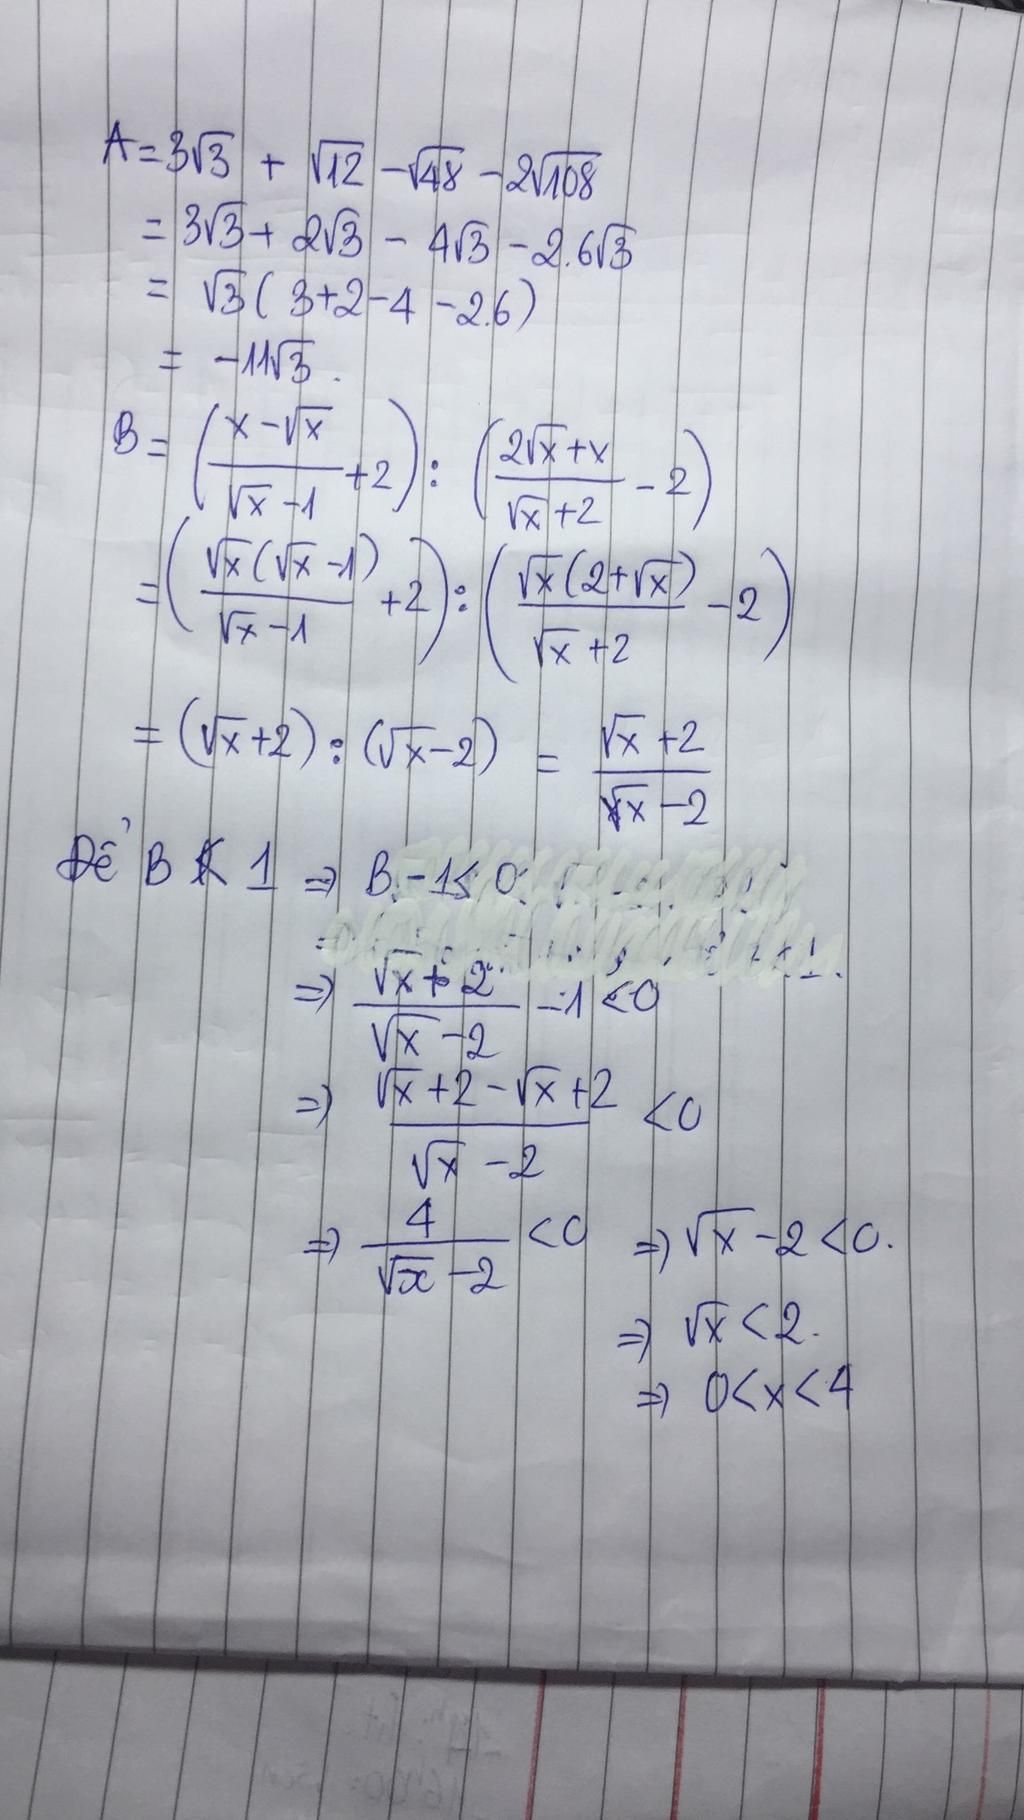 A = 3√3 + √12 - √48 - 2√108
= 3√3 + 2√3 - 4√3 - 2.6√3
= √3 ( 3+2-4 -2.6)
= -11√3.
B = ((x-√x)/(√x-1) + 2) : ((2√x+x)/(√x+2) - 2)
= ((√x(√x-1))/(√x-1) + 2) : ((√x(2+√x))/(√x+2) - 2)
= (√x+2) : (√x-2) = (√x+2)/(√x-2)
Để B < 1 => B-1 < 0
=> (√x+2)/(√x-2) -1 < 0
=> (√x+2-√x+2)/(√x-2) < 0
=> 4/(√x-2) < 0 => √x-2 < 0.
=> √x < 2.
=> 0 < x < 4